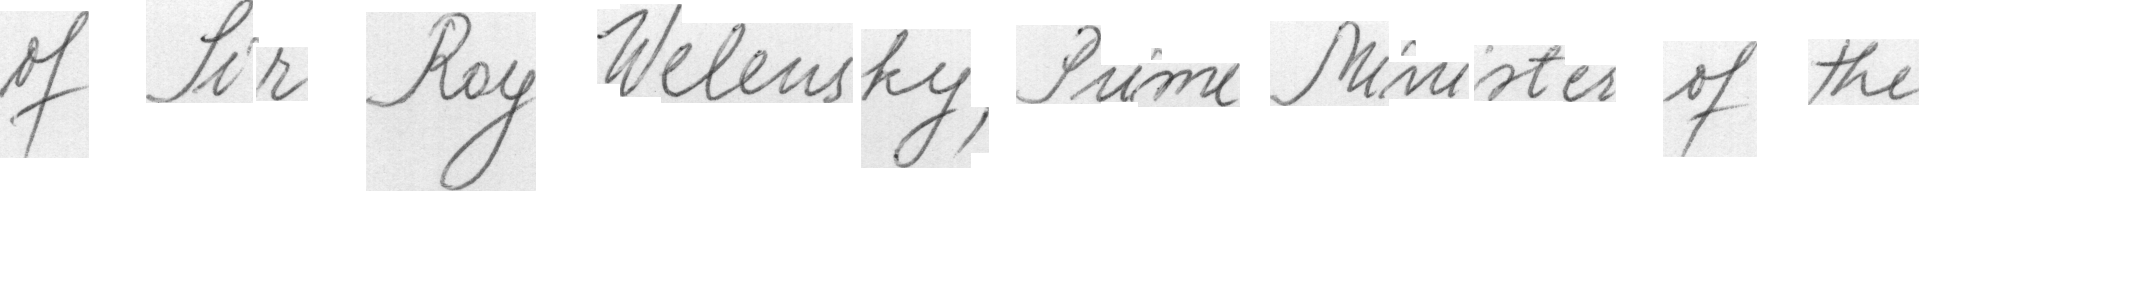 of Sir Roy Welensky, Prime Minister of the